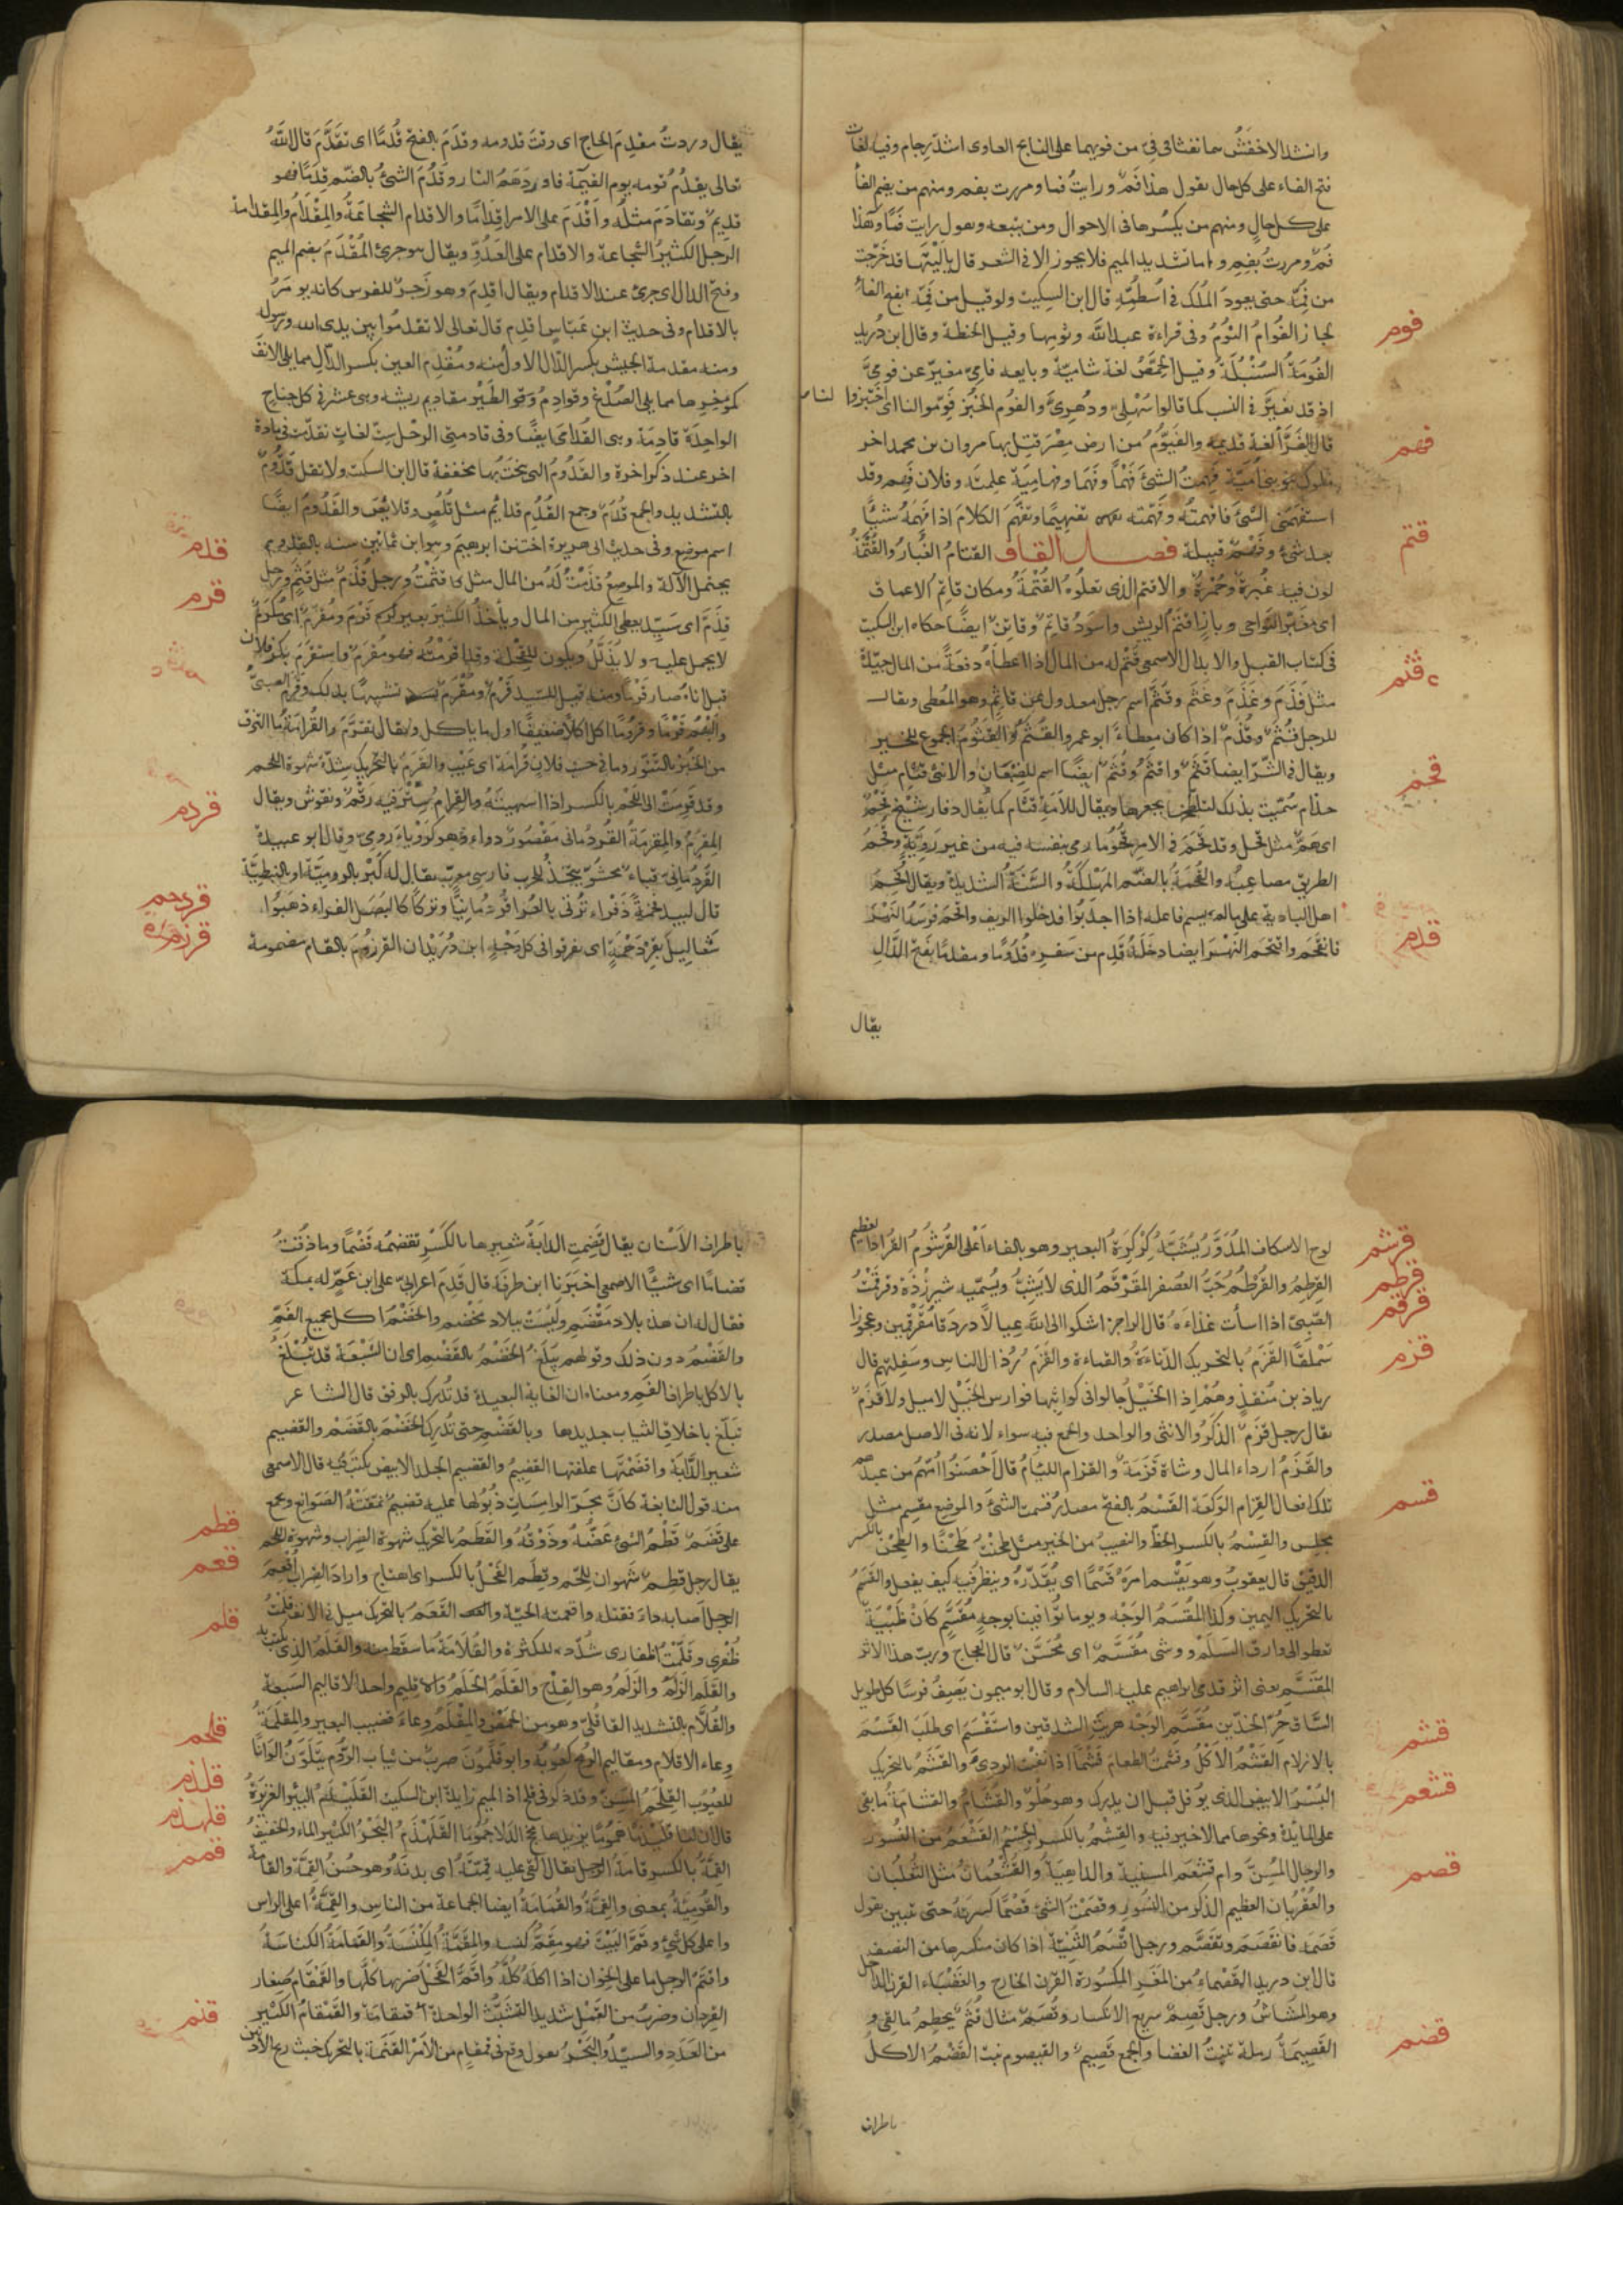 وانشد الاخفش هما نفثا فى فيّ من فويهما على النابح العاوى اشد رجام وفيه لغات
فتح الفاء على كل حال يقول هذا فَمٌ ورايتُ فما ومررت بفم ومنهم من يضم الفأ
على كل حال ومنهم من يكسرها فى الاحوال ومن يتبعه ويقول رايت فَمًا وهذا
فُم ومررت بفِم واما تشديد الميم فلا يجوز الا فى الشعر قال يا ليتها قد خرجت
من فمّه حتى يعود المُلك فى اُسطمّه قال ابن السكيت ولو قيل من فَمّه بفتح الفأ
لجاز الفُوم الثوم وفى قراءة عبد الله وثومها وقيل الحنطة وقال ابن دريد
الفُومَة السُنْبُلَة وقيل الحمّص لغة شاميّة وبايعه فامىّ مغيّر عن فومىّ
اذ قد تغيّر فى النسب كما قالوا سُهْلىّ ودُهرىّ والفوم الخبز فوّموا لنا اى اختبزوا لنا
قال الفرّأ لغة قديمة والفيّوم من ارض مصر قتل بها مروان بن محمد اخر
ملوك بنى اميّة فهمتُ الشئ فَهْمًا وفَهَمًا وفهاميَة علمته وفلان فهم وقد
استفهمنى الشئ فافهمتُه وفهّمته تفهيمًا وتفهّم الكلامَ اذا فهمه شيئًا
بعد شئ وفَهْم قبيلة فصـل القاف القتام الغُبار والقُتْمَة
لون فيه غُبرة وحُمرة والاقتم الذى تعلوه القُتْمَة ومكان قاتم الاعماق
اى مغبرّ النواحى وباز اقتم الريش واسود قاتم وقاتن ايضا حكاه ابن السكيت
فى كتاب القلب والابدال الاصمعى قثم له من المال اذا اعطاه دفعة من المال جيّدة
مثل قَذَم وغَذَم وغَثَم وقُثَم اسم رجل معدول عن قاثم وهو المُعطى ويقال
للرجل قُثَم وقُذَم اذا كان معطاءً ابو عمرو القُثَم والقَثوم الجموع للخير
ويقال فى الشرّ ايضا قَثَم واقتثم وقُثَم ايضًا اسم للضبعان والانثى قثام مثل
حذام سُمّيت بذلك لتلطّخها بجعرها ويقال للاَمَة قثام كما يقال دفار شيخ قَحْم
اى هَمّ مثل قحل وقد قحم فى الامر قُحومًا رمى بنفسه فيه من غير رويّة وقُحَم
الطريق مصاعبه والقُحمة بالضم المهلكة والسَنة الشديدة ويقال اُقحم
اهل البادية على ما لم يسم فاعله اذا اجدبوا فدخلوا الريف واقحم فرسَه النهر
فانقحم واقتحم النهرَ ايضا دخله قَدِم من سفره قُدومًا ومقدمًا بفتح الدال
يقال
فوم
فهم
قتم
قثم
قحم
قدم
يقال وردتُ مقدم الحاج اى وقت قدومه وقَدَم بالفتح قُدْمًا اى تقدّم قال الله
تعالى يقدم قومه يوم القيمة فاوردهم النار وقَدُم الشئ بالضم قِدَمًا فهو
قديم وتقادم مثله واَقْدَم على الامر اقدامًا والاقدام الشجاعة والمِقْدام والمِقدامة
الرجل الكثير الشجاعة والاقدام على العدوّ ويقال هو جرئ المُقْدَم بضم الميم
وفتح الدال اى جرئ عند الاقدام ويقال اقدِم وهو زَجر للفرس كانه يومَر
بالاقدام وفى حديث ابن عباس اقدم قال تعالى لا تقدموا بين يدى الله ورسوله
ومنه مقدمة الجيش بكسر الدال الاول منه ومُقْدِم العين بكسر الدال مما يلى الانف
كمؤخرها مما يلى الصدغ وقوادم الطير مقاديم ريشه وهى عشر فى كل جناح
الواحدة قادمة وهى القُدامى ايضا وفى قادمتى الرحل ست لغات تقدمت فى مادة
اخر عند ذكر اخرة والقَدُوم التى ينحت بها مخففة قال ابن السكيت ولا تقل قَدّوم
بالتشديد والجمع قُدُم وجمع القُدُم قدائم مثل قُلُص وقلائص والقدوم ايضا
اسم موضع وفى حديث ابى هريرة اختتن ابرهيم وهو ابن ثمانين سنه بالقدوم
يحتمل الآلة والموضع قَذَمْتُ له من المال مثل قَثَمْتُ ورجل قُذَم مثل قُثَم ورجل
قِذَمّ اى سيّد يعطى الكثير من المال وياخذ الكثير بعير قَرْم ومُقرَم اى مُكرَم
لا يحمل عليه ولا يذلّل ويكون للفحلة وقد اقرمتُه فهو مُقرَم واستقرم بكر فلان
قبل اناه صار قَرْمًا ومنه قيل للسيد قَرْم ومُقْرَم تشبيها بذلك وقرم الصبىّ
والبهم قَرْمًا وقُرومًا اكل اكلًا ضعيفًا اول ما ياكل ويقال يتقرّم والقُرامة ما التزق
من الخبز بالتنّور وما فى حسب فلان قُرامة اى عيب والقَرَم بالتحريك شدة شهوة اللحم
وقد قَرِمت الى اللحم بالكسر اذا اشتهيتَه والقِرام ستر فيه رقم ونقوش ويقال
المِقْرَم والمِقرَمَة القُرْدُمانى مقصور دواء وهو كَرَوْياء رومىّ وقال ابو عبيدة
القَرْدُمانىّ قباء محشوّ يتخذ للحرب فارسى معرّب يقال له كَبْر بالروميّة او بالنبطيّة
قال لبيد فخمة ذَفْراء تُرتى بالعُرا قُرْدمانيًّا وتركًا كالبصل الفراء ذهبوا
شعاليل بقِرْدَحْمَة اى تفرقوا فى كل وجه ابن دريد ان القرزوم بالقاف مضمومة
قدم
قذم
قرم
قردم
قردحم
قرزم
لوح الاسكاف المُدَوّر يُشبَّه كركرة البعير وهو بالفاء اعلى القُرشوم القُراد العظيم
القِرْطِم والقُرْطُم حبّ العصفر المُقَرْقَم الذى لا يشبّ ويُسمّيه شيرزده وقرقمتُ
الصبىّ اذا اسأت غذاءه قال الراجز اشكو الى الله عيالا دردقا مُقَرْقَمين وعجوزا
سَمْلَقًا القَزَم بالتحريك الدناءة والقماءة والقَزَم رُذال الناس وسفلتهم قال
زياد بن منقذ وهُمْ اذا الخيلُ جالوا فى كواثبها فوارس الخيل لا ميل ولا قَزَم
يقال رجل قزم الذكر والانثى والواحد والجمع فيه سواء لانه فى الاصل مصدر
والقَزَم ارداء المال وشاة قَزَمَة والقزام اللئام قال اَحْصَنوا امّهم من عبدهم
تلك افعال القزام الوكعَة القَسْم بالفتح مصدر قسمت الشئ والموضع مقسم مثل
مجلس والقِسْم بالكسر الحظ والنصيب من الخير مثل طحنتُ طَحْنًا والطِحْن بالكسر
الدقيق قال يعقوب وهو يقسم امره قَسْمًا اى يُقدّره وينظر فيه كيف يفعل والقَسَم
بالتحريك اليمين وكذا المُقْسَم الوجْه ويوما توافينا بوجه مُقَسَّم كان ظَبْيَة
تعطو الى وارق السلَم ووشى مُقَسَّم اى مُحَسَّن قال العجاج وربّ هذا الاثر
المُقَسَّم يعنى اثر قدمى ابراهيم عليه السلام وقال ابو ميمون يصف فرسًا كل طويل
الساق حُرّ الخدّين مُقَسَّم الوَجْه هريت الشدقين واستقسم اى طلب القَسْم
بالازلام القَشْم الاَكْل وقَشَمْتُ الطعامَ قَشْمًا اذا نفيت الردىّ والقَشَم بالتحريك
البُسْر الابيض الذى يؤكل قبل ان يدرك وهو حُلْو والقُشام والقُشامة ما بقى
على المائدة ونحوها مما لا خير فيه والقِشْم بالكسر الجِسْم القَشْعم من النسور
والرجال المُسِنّ وام قشعم المنية والداهية والقُشْعُمان مثل الثعلبان
والعُقْربان العظيم الذكر من النسور وقصَمتُ الشئ قَصْمًا كسرته حتى تبين يقول
قَصَمَه فانقصم وتقصّم ورجل اقصَم الثنيّة اذا كان منكسرها من النصف
قال ابن دريد القصماء من المعز المكسورة القرن الخارج والعَضباء القرن الداخل
وهو المشاش ورجل قَصِم سريع الانكسار وقُصَم مثال قُثَم يحطم ما لقى و
القَصيمَة رملة تُنبت الغضا والجمع قصيم والقيصوم نبت القَضْم الاكل
باطراف
قرشم
قرطم
قرقم
قزم
قسم
قشم
قشعم
قصم
قضم
باطراف الاسنان يقال قَضِمت الدابةُ شعيرها بالكَسْر تقضمه قَضْمًا وما ذقتُ
قضامًا اى شيئًا الاصمعى اخبرنا ابن طرفة قال قدم اعرابىّ على ابن عمّ له بمكة
فقال له ان هذه بلاد مَقْضَم وليست ببلاد مَخْضم والخَضْم اكل بجميع الفم
والقَضْم دون ذلك وقولهم يبلغ الخَضْم بالقَضْم اى ان الشبعة قد تُبْلَغ
بالاكل باطراف الفم ومعناه ان الغاية البعيدة قد تُدرك بالرفق قال الشاعر
تبلّغ باخلاق الثياب جديدها وبالقَضْم حتى تُدرك الخَضْم بالقَضْم والقضيم
شعير الدابّة واقضمتُها علفتها القضيم والقضيم الجلد الابيض يكتب فيه قال الاصمعى
منه قول النابغة كانّ مجرّ الرامسات ذيولها عليه قضيم نمّقته الصوانع وجمع
على قَضَم قَطْم الشئ عَضّه وذَوْقه والقَطَم بالتحريك شهوة الضراب وشهوة اللحم
يقال رجل قطِم شهوان للحم وقَطِم الفَحْل بالكسر اى اهتاج واراد الضراب اُقْعِمَ
الرجل اصابه داء فقتله واقعمته الحيّة والقَعَم بالتحريك ميل فى الانف قلمتُ
ظُفْرى وقلّمتُ اظفارى شُدّد للكثرة والقُلامَة ما سقط منه والقلَم الذى يكتب به
والقَلَم الزَلَم والزُلَم وهو القِدْح والقَلَم الجَلَم والاقليم واحد الاقاليم السبعة
والقُلّام بالتشديد القاقُلّى وهو من الحمْض والمِقْلَم وعاء قضيب البعير والمقلمة
وعاء الاقلام ومقاليم الرمح كعوبه وابو قَلَمُون ضرب من ثياب الروم يتلوّن الوانًا
للعيون القِلْحَمّ المُسِنّ وقد ذكر فى قلح اذ الميم زايدة ابن السكيت القَلَيْذم البير الغزيرة
قال ان لنا قَلَيْذَمًا هَموما يزيدها مَخْج الدِلا جُموما القَلَهْذَم البَحْر الكثير الماء والخفيف
القِمّة بالكسر قامة الرجل يقال القى عليه قِمّته اى بدنه وهو حسن القِمّة والقامة
والقُومِيّة بمعنى والقِمّة والقُمامة ايضا الجماعة من الناس والقِمّة اعلى الراس
واعلى كل شئ وقَمَّ البيتَ فهو مقِمّ كنسه والمِقَمّة المِكْنَسَة والقُمامة الكناسَة
واقتم الرجل ما على الخوان اذا اكله كلّه واقمّ الفحل ضربها كلّها والقمقام صغار
القِردان وضرب من القمْل شديد التشبّث الواحدة قمقامة والقَمْقام الكثير
من العدد والسيّد والبَحْر يقول وقع فى قمقام من الامر القَنَمَة بالتحريك خبث ريح الادهان
قطم
قعم
قلم
قلحم
قلذم
قلهذم
قمم
قنم